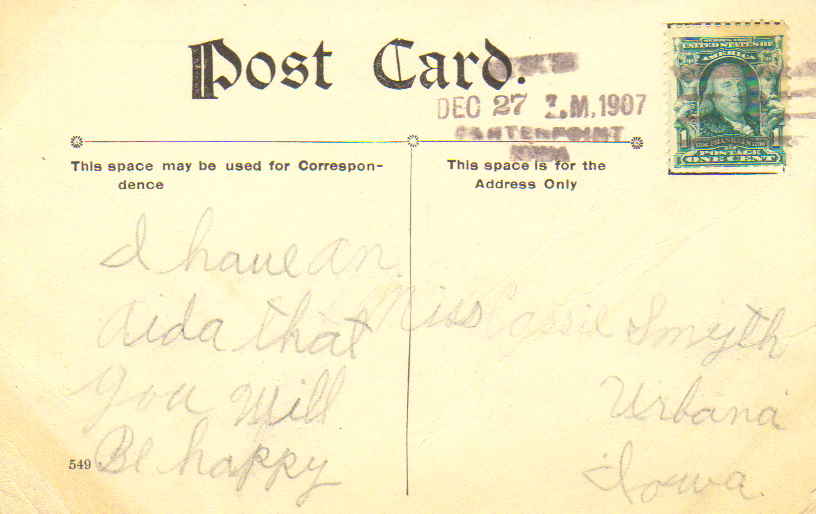 Post Card.
DEC 27 1907
CENTERPOINT
IOWA
UNITED STATES OF
AMERICA
1
POSTAGE
ONE CENT
This space may be used for Correspon-
dence
This space is for the
Address Only
I have an
aida that
you Will
Be happy
Miss Cassie Smyth
Urbana
Iowa.
549